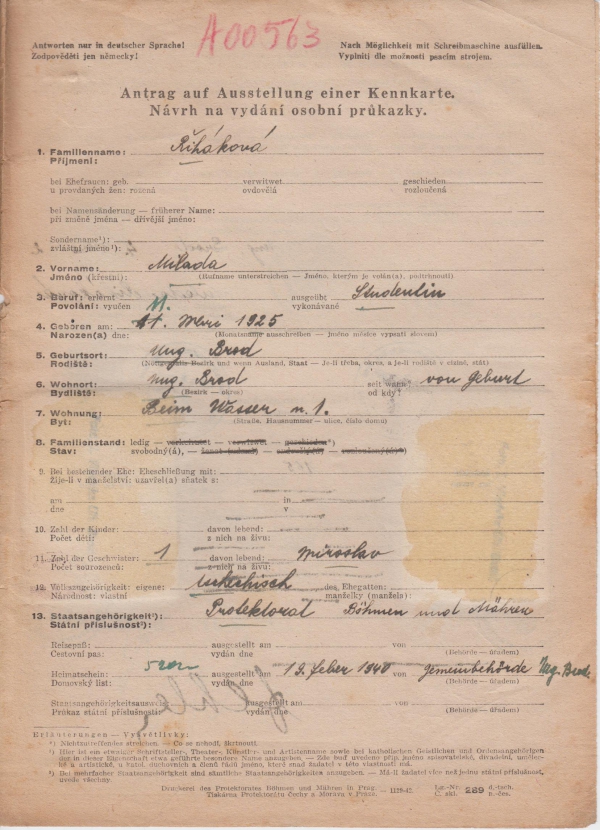 A00563
Antworten nur in deutscher Sprache! Nach Möglichkeit mit Schreibmaschine ausfüllen.
Zodpověděti jen německy! Vyplniti dle možnosti psacím strojem.
Antrag auf Ausstellung einer Kennkarte.
Návrh na vydání osobní průkazky.
1. Familienname: Řiháková
Příjmení:
bei Ehefrauen: geb. verwitwet geschieden
u provdaných žen: rozená ovdovělá rozloučená
bei Namensänderung — früherer Name:
při změně jména — dřívější jméno:
Sondername¹):
zvláštní jméno¹):
2. Vorname: Milada
Jméno (křestní): (Rufname unterstreichen — Jméno, kterým je volán(a), podtrhnouti)
3. Beruf: erlernt ausgeübt Studentin
Povolání: vyučen vykonávané
4. Geboren am: 1925
Narozen(a) dne: (Monatsname ausschreiben — jméno měsíce vypsati slovem)
5. Geburtsort: Ung. Brod
Rodiště: (Nötigenfalls Bezirk und wenn Ausland, Staat — Je-li třeba, okres, a je-li rodiště v cizině, stát)
6. Wohnort: Ung. Brod seit wann? von Geburt
Bydliště: (Bezirk — okres) od kdy?
7. Wohnung: Beim Wasser n. 1.
Byt: (Straße, Hausnummer — ulice, číslo domu)
8. Familienstand: ledig — verheiratet — verwitwet — geschieden*)
Stav: svobodný(á),
9. Bei bestehender Ehe: Eheschließung mit:
Žije-li v manželství: uzavřel(a) sňatek s:
am in
dne v
10. Zahl der Kinder: davon lebend:
Počet dětí: z nich na živu:
11. Zahl der Geschwister: 1 davon lebend: Miroslav
Počet sourozenců: z nich na živu:
12. Volkszugehörigkeit: eigene: tschechisch des Ehegatten:
Národnost: vlastní manželky (manžela):
13. Staatsangehörigkeit²): Protektorat Böhmen und Mähren
Státní příslušnost²):
Reisepaß: ausgestellt am von
Cestovní pas: vydán dne (Behörde — úřadem)
Heimatschein: ausgestellt am 19. Feber 1940 von Gemeindebehörde Ung. Brod.
Domovský list: vydán dne (Behörde — úřadem)
Staatsangehörigkeitsausweis ausgestellt am von
Průkaz státní příslušnosti: vydán dne (Behörde — úřadem)
Erläuterungen — Vysvětlivky:
*) Nichtzutreffendes streichen. — Co se nehodí, škrtnouti.
¹) Hier ist ein etwaiger Schriftsteller-, Theater-, Künstler- und Artistenname sowie bei katholischen Geistlichen und Ordensangehörigen
der in dieser Eigenschaft etwa geführte besondere Name anzugeben — Zde buď uvedeno příp. jméno spisovatelské, divadelní, umělecké
a artistické, u katol. duchovních a členů řádů jméno, které snad žadatel v této vlastnosti má.
²) Bei mehrfacher Staatsangehörigkeit sind sämtliche Staatsangehörigkeiten anzugeben. — Má-li žadatel více než jednu státní příslušnost,
uvede všechny.
Druckerei des Protektorates Böhmen und Mähren in Prag. — 1129-42. Lg.-Nr. 289 d.-tsch.
Tiskárna Protektorátu Čechy a Morava v Praze. C. skl. n.-čes.